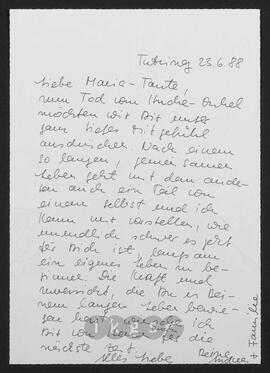 Tutzing 23.6.88
Liebe Maria-Tante,
zum Tod von Onkel
möchten wir Dir unser
ganz tiefes Mitgefühl
ausdrücken. Nach einem
so langen, gemeinsamen
Leben geht mit dem ande-
ren auch ein Teil von
einem selbst und ich
kann mir vorstellen, wie
unendlich schwer es jetzt
für Dich ist, langsam
ein eigenes Leben zu be-
ginnen. Die Kraft und
Zuversicht, die Du in Dei-
nem langen Leben bewie-
sen hast, wünsche ich
Dir von für die
nächste Zeit.
Alles Liebe
Deine
+ Familie